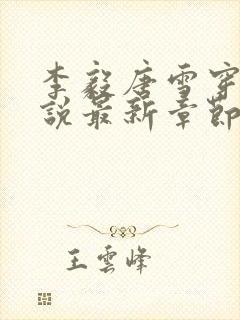 李毅唐雪穿
說最新章節
王雲峰